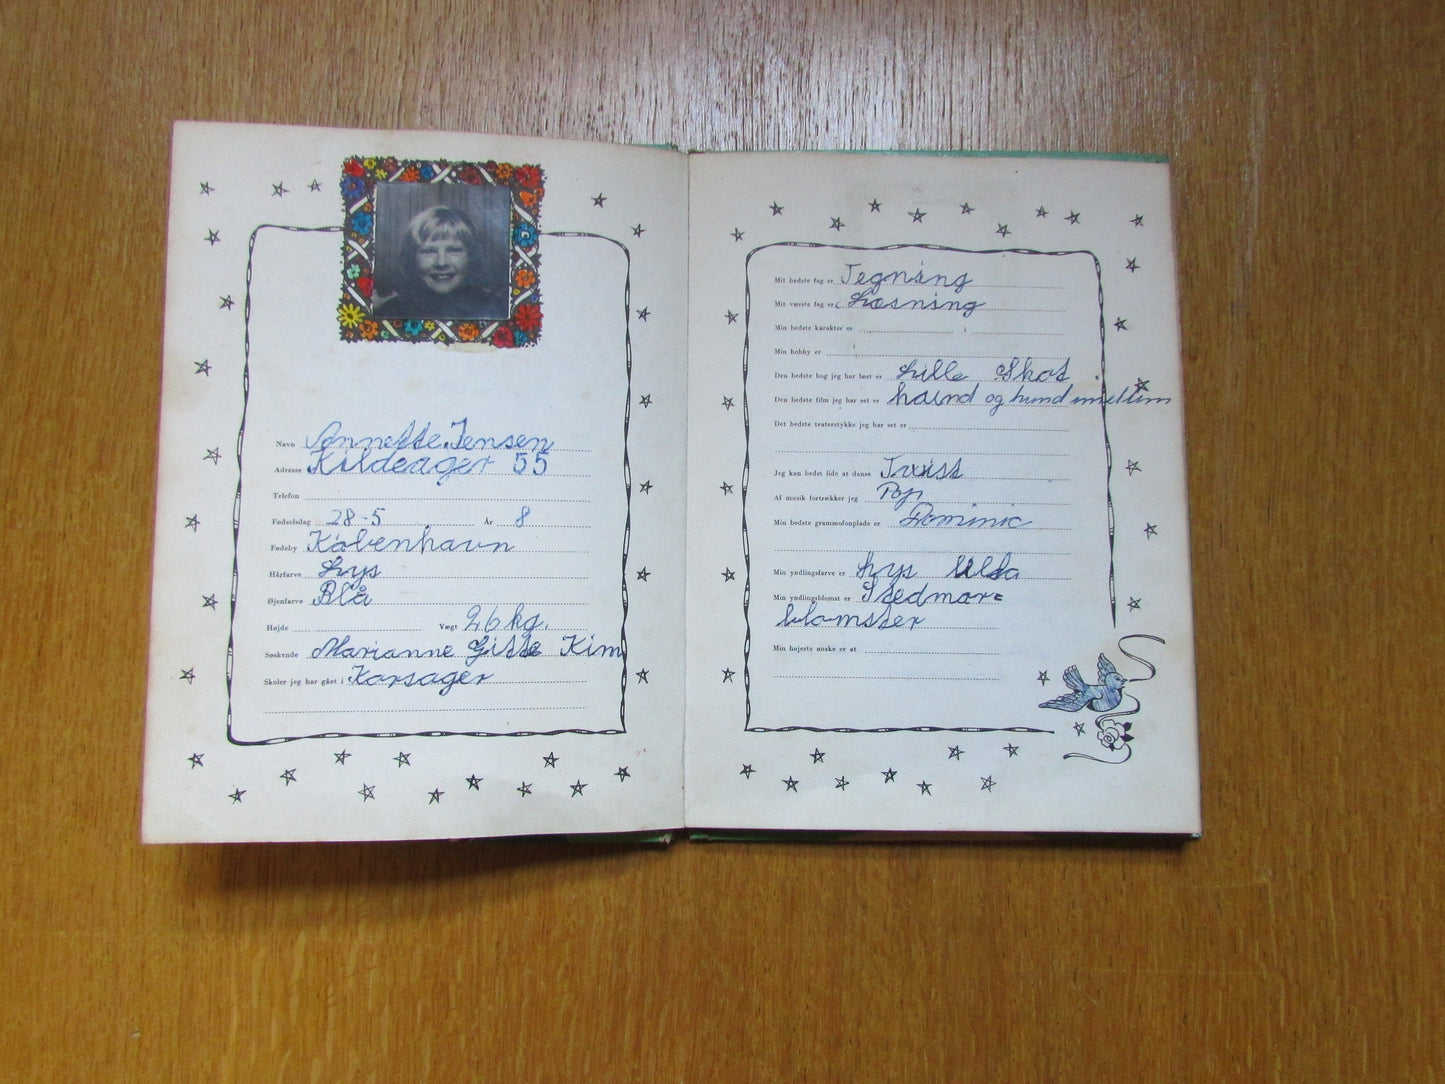 Navn Annette Jensen
Adresse Kildeager 55
Telefon
Fødselsdag 28-5 År 8
Fødeby København
Hårfarve Lys
Øjenfarve Blå
Højde Vægt 26 kg.
Søskende Marianne Gitte Kim
Skoler jeg har gået i Korsager
Mit bedste fag er Tegning
Mit værste fag er Læsning
Min bedste karakter er
Min hobby er
Den bedste bog jeg har læst er Lille Skot
Den bedste film jeg har set er hund og hund imellem
Det bedste teaterstykke jeg har set er
Jeg kan bedst lide at danse Twist
Af musik foretrækker jeg Pop
Min bedste grammofonplade er Dominic
Min yndlingsfarve er Lys
Min yndlingsblomst er Stedmor=
blomster
Min højeste ønske er at